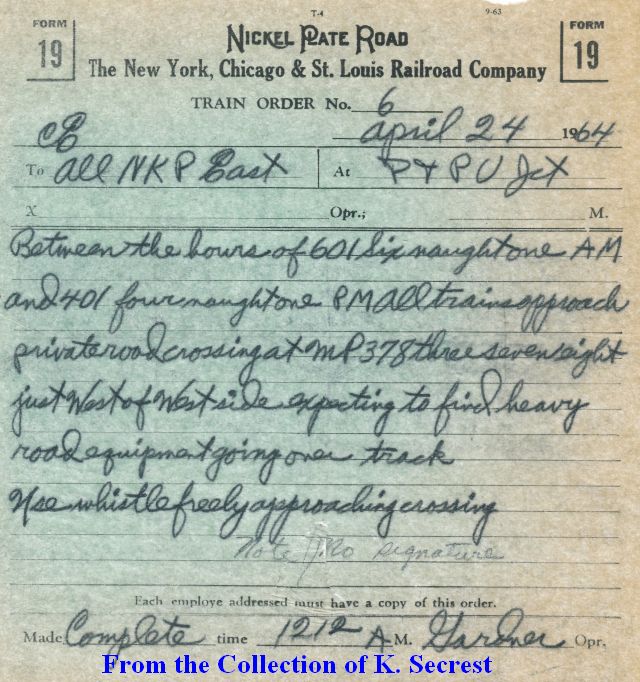 T-4 9-63
FORM 19 NICKEL PLATE ROAD FORM 19
The New York, Chicago & St. Louis Railroad Company
TRAIN ORDER No. 6
CE April 24 1964
To All NKP East At P & PU Jct
X Opr.; M.
Between the hours of 601 Six naught one AM
and 401 four naught one PM All trains approach
private road crossing at MP 378 three seven eight
just West of West side expecting to find heavy
road equipment going over track
Use whistle freely approaching crossing
Note No signature
Each employe addressed must have a copy of this order.
Made Complete time 1212 A M. Gardner Opr.
From the Collection of K. Secrest